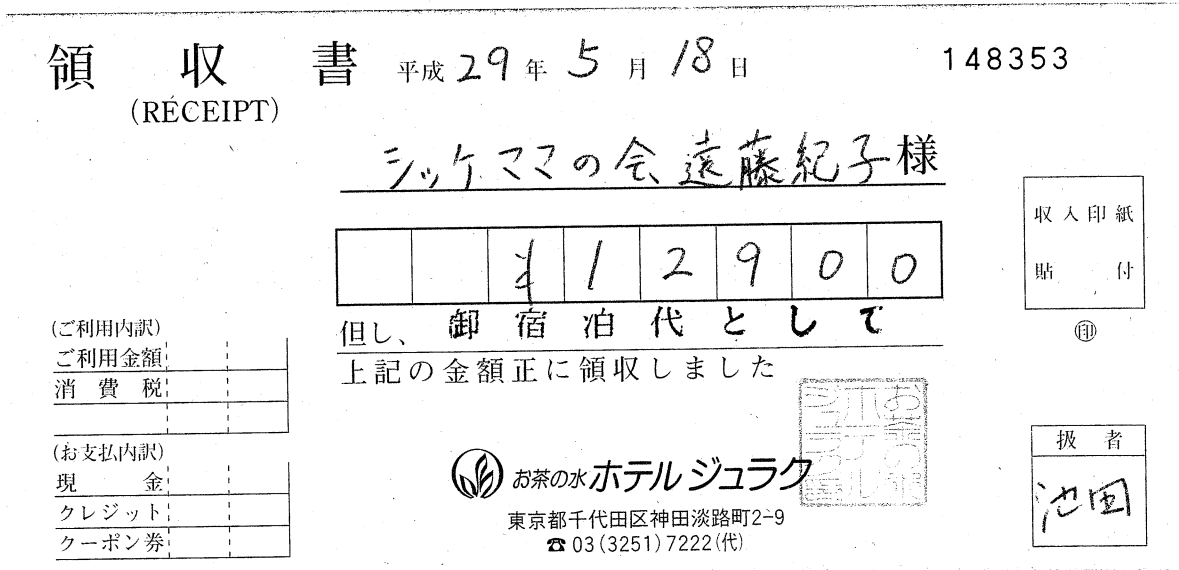 領収書 平成29年5月18日 148353
(RECEIPT)
シッケママの会 遠藤紀子様
¥12900
但し、御宿泊代として
上記の金額正に領収しました
収入印紙
貼付
印
(ご利用内訳)
ご利用金額
消費税
(お支払内訳)
現金
クレジット
クーポン券
お茶の水ホテルジュラク
東京都千代田区神田淡路町2-9
☎03(3251)7222(代)
お茶の水
ホテル
扱者
池田